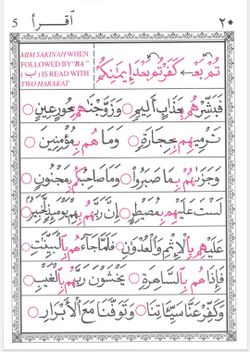 ٢٠ اقرأ 5
تُم بَعْـ ← كَفَرْتُم بَعْدَ إِيمَـٰنِكُمْ
MIM SAKINAH WHEN
FOLLOWED BY "BA"
(ب) IS READ WITH
TWO HARAKAT
فَبَشِّرْهُم بِعَذَابٍ أَلِيمٍ ○ وَزَوَّجْنَـٰهُم بِحُورٍ عِينٍ ○
تَرْمِيهِم بِحِجَارَةٍ ○ وَمَا هُم بِمُؤْمِنِينَ ○
وَجَزَىٰهُم بِمَا صَبَرُوا ○ وَمَا صَاحِبُكُم بِمَجْنُونٍ ○
لَسْتَ عَلَيْهِم بِمُصَيْطِرٍ ○ إِنَّ رَبَّهُم بِهِمْ يَوْمَئِذٍ لَّخَبِيرٌ ○
عَلَيْهِم بِالْإِثْمِ وَالْعُدْوَانِ ○ فَلَمَّا جَاءَهُم بِالْبَيِّنَـٰتِ ○
فَإِذَا هُم بِالسَّاهِرَةِ ○ يَخْشَوْنَ رَبَّهُم بِالْغَيْبِ ○
وَكَفِّرْ عَنَّا سَيِّئَاتِنَا ○ وَتَوَفَّنَا مَعَ الْأَبْرَارِ ○